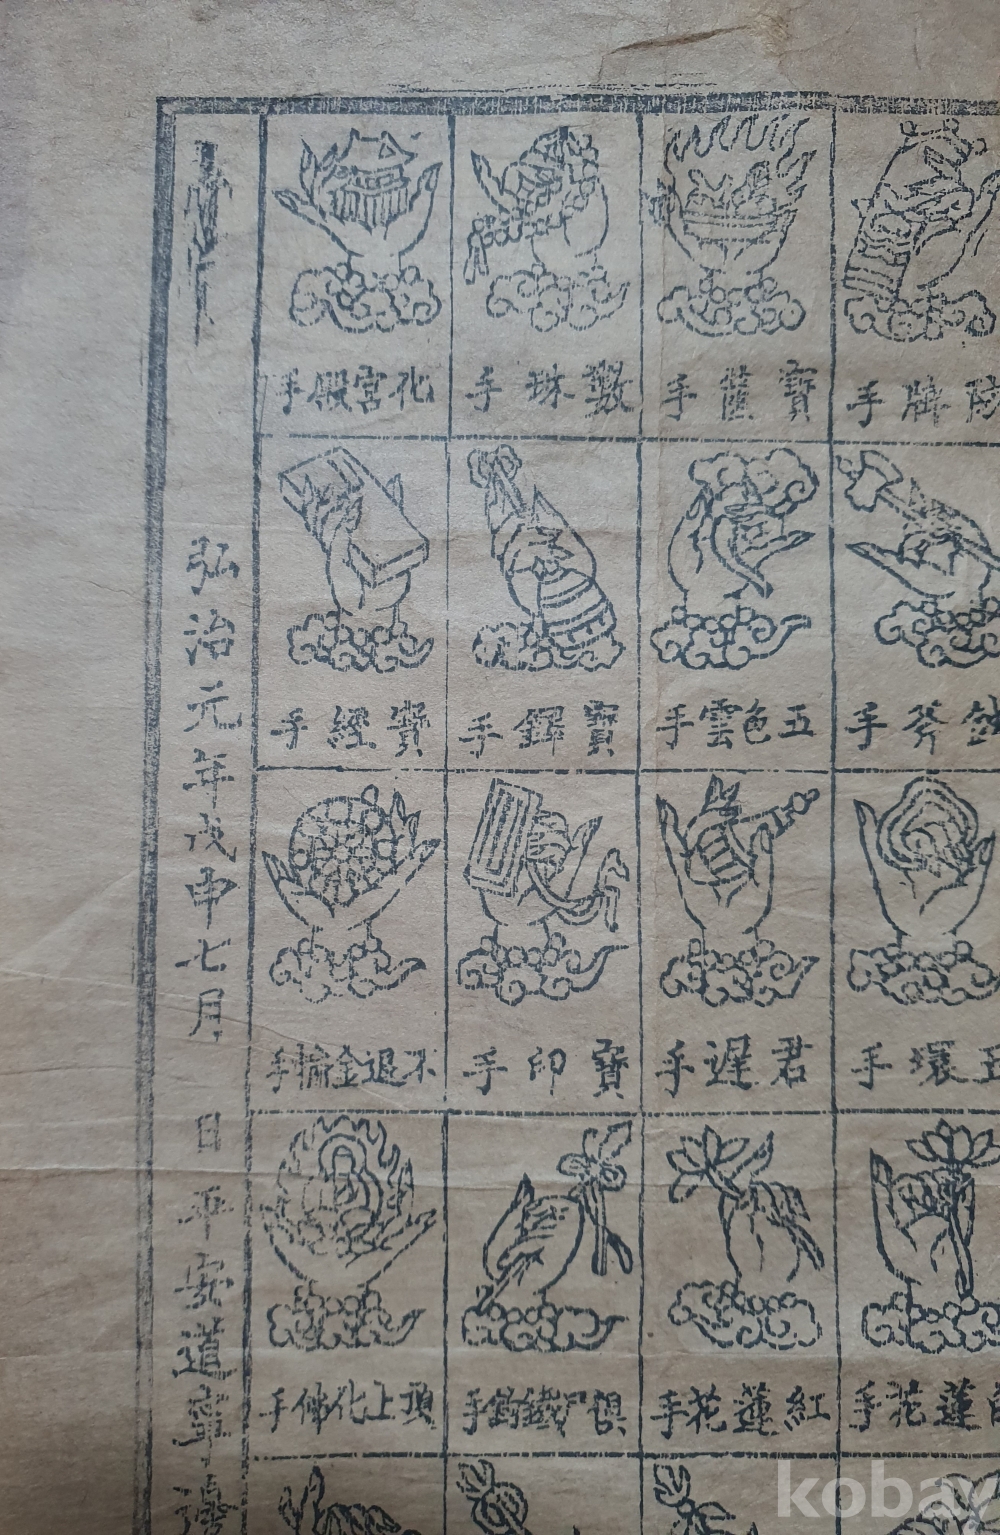 防牌手
寶篋手
數珠手
化宮殿手
鉞斧手
五色雲手
寶鐸手
寶經手
玉環手
君遲手
寶印手
不退金輪手
白蓮花手
紅蓮花手
俱尸鐵鉤手
頂上化佛手
弘治元年戊申七月 日平安道寧邊
kobay